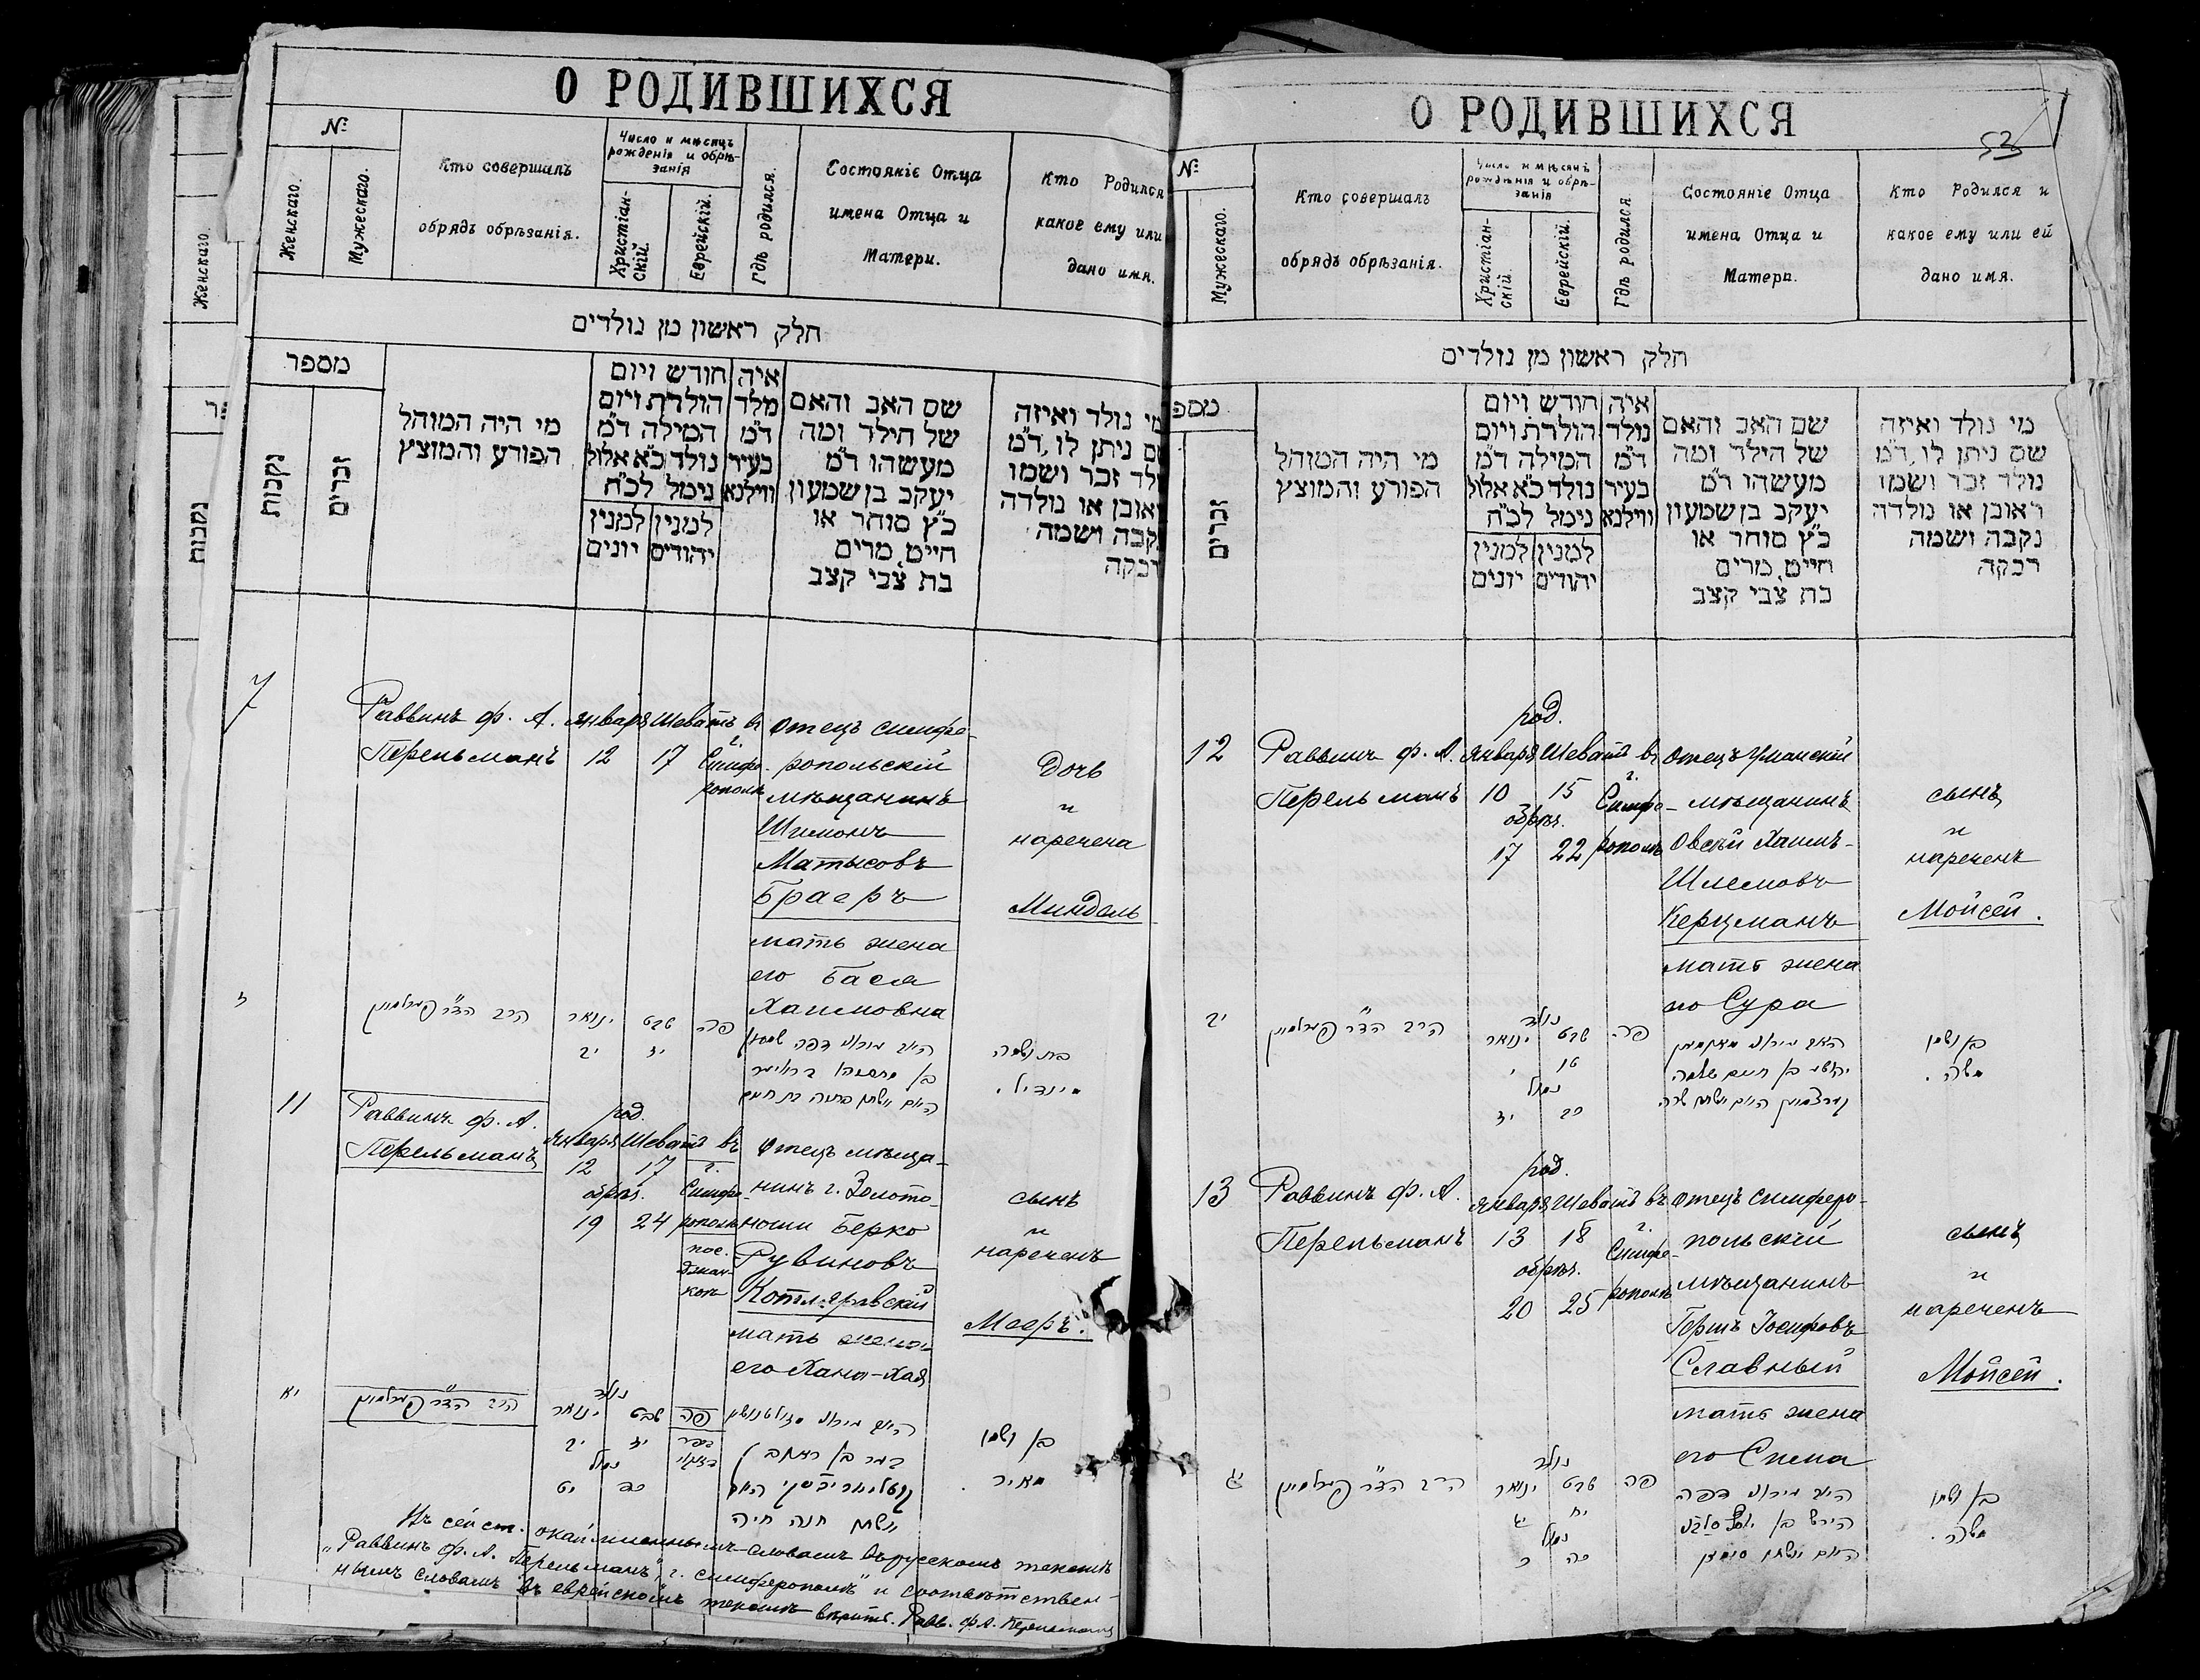 О РОДИВШИХСЯ
№
Женскаго.
Мужескаго.
Кто совершалъ
обрядъ обрѣзанія.
Число и мѣсяцъ
рожденія и обрѣ-
занія
Христіан-
скій.
Еврейскій.
Гдѣ родился.
Состояніе Отца
имена Отца и
Матери.
Кто Родился
какое ему или
дано имя.
חלק ראשון מן נולדים
מספר
נקבות
זכרים
מי היה המוהל
הפורע והמוצץ
חודש ויום
הולדת ויום
המילה ד״מ
נולד כ״א אלול
נימל לכ״ח
למנין
יונים
למנין
יהודים
איה
מלד
ד״מ
בעיר
ווילנא
שם האב והאם
של הילד ומה
מעשהו ד״מ
יעקב בן שמעון
כ״ץ סוחר או
חייט, מרים
בת צבי קצב
מי נולד ואיזה
שם ניתן לו, ד״מ
ולד זכר ושמו
ראובן או נולדה
נקבה ושמה
רבקה
7
Раввинъ Ф. А.
Перельманъ
Января
12
Шеватъ
17
въ
г.
Симфе-
рополѣ
Отецъ симфе-
ропольскій
мѣщанинъ
Шимонъ
Матысовъ
Браеръ
мать жена
его Бася
Хаимовна
Дочь
и
наречена
Миндель
ז
הרב הד״ר פערלמאן
ינואר
יב
שבט
יז
פה
בת ושמה
מינדיל.
11
Раввинъ Ф. А.
Перельманъ
род.
Января
12
Шеватъ
17
обрѣз.
19
24
въ
г.
Симфе-
рополѣ
пос.
Джан-
кой
Отецъ мѣща-
нинъ г. Золото-
ноши Берко
Рувиновъ
Котляревскій
мать жена
его Хана-Хая
сынъ
и
нареченъ
Мееръ.
יא
הרב הד״ר פערלמאן
נולד
ינואר
יב
שבט
יז
נמול
יט
כד
פה
בן ושמו
מאיר.
ואשתו חנה חיה
Въ сей ст. окаймленнымъ словамъ въ русскомъ текстѣ
„Раввинъ Ф. А. Перельманъ", „г. Симферополѣ" и соотвѣтствен-
нымъ словамъ въ еврейскомъ текстѣ вѣрить. Равв. Ф. А. Перельманъ
О РОДИВШИХСЯ
53
№
Мужескаго.
Кто совершалъ
обрядъ обрѣзанія.
Число и мѣсяцъ
рожденія и обрѣ-
занія
Христіан-
скій.
Еврейскій.
Гдѣ родился.
Состояніе Отца
имена Отца и
Матери.
Кто Родился и
какое ему или ей
дано имя.
חלק ראשון מן נולדים
מספ
זכרים
מי היה המוהל
הפורע והמוצץ
חודש ויום
הולדת ויום
המילה ד״מ
נולד כ״א אלול
נימל לכ״ח
למנין
יונים
למנין
יהודים
איה
נולד
ד״מ
בעיר
ווילנא
שם האב והאם
של הילד ומה
מעשהו ד״מ
יעקב בן שמעון
כ״ץ סוחר או
חייט, מרים
בת צבי קצב
מי נולד ואיזה
שם ניתן לו, ד״מ
נולד זכר ושמו
ראובן או נולדה
נקבה ושמה
רבקה
12
Раввинъ Ф. А.
Перельманъ
род.
Января
10
Шеватъ
15
обрѣз.
17
22
въ
г.
Симфе-
рополѣ
Отецъ Уманскій
мѣщанинъ
Овсѣй Хаимъ-
Шлемовъ
Керцманъ
мать жена
его Сура
сынъ
и
нареченъ
Мойсей.
יב
הרב הד״ר פערלמאן
נולד
ינואר
י
שבט
טו
נמול
יז
כב
פה
בן ושמו
משה.
13
Раввинъ Ф. А.
Перельманъ
род.
Января
13
Шеватъ
18
обрѣз.
20
25
въ
г.
Симфе-
рополѣ
Отецъ симферо-
польскій
мѣщанинъ
Гершъ Іосифовъ
Славный
мать жена
его Сима
сынъ
и
нареченъ
Мойсей.
יג
הרב הד״ר פערלמאן
נולד
ינואר
יג
שבט
יח
נמול
כ
כה
פה
בן ושמו
משה.